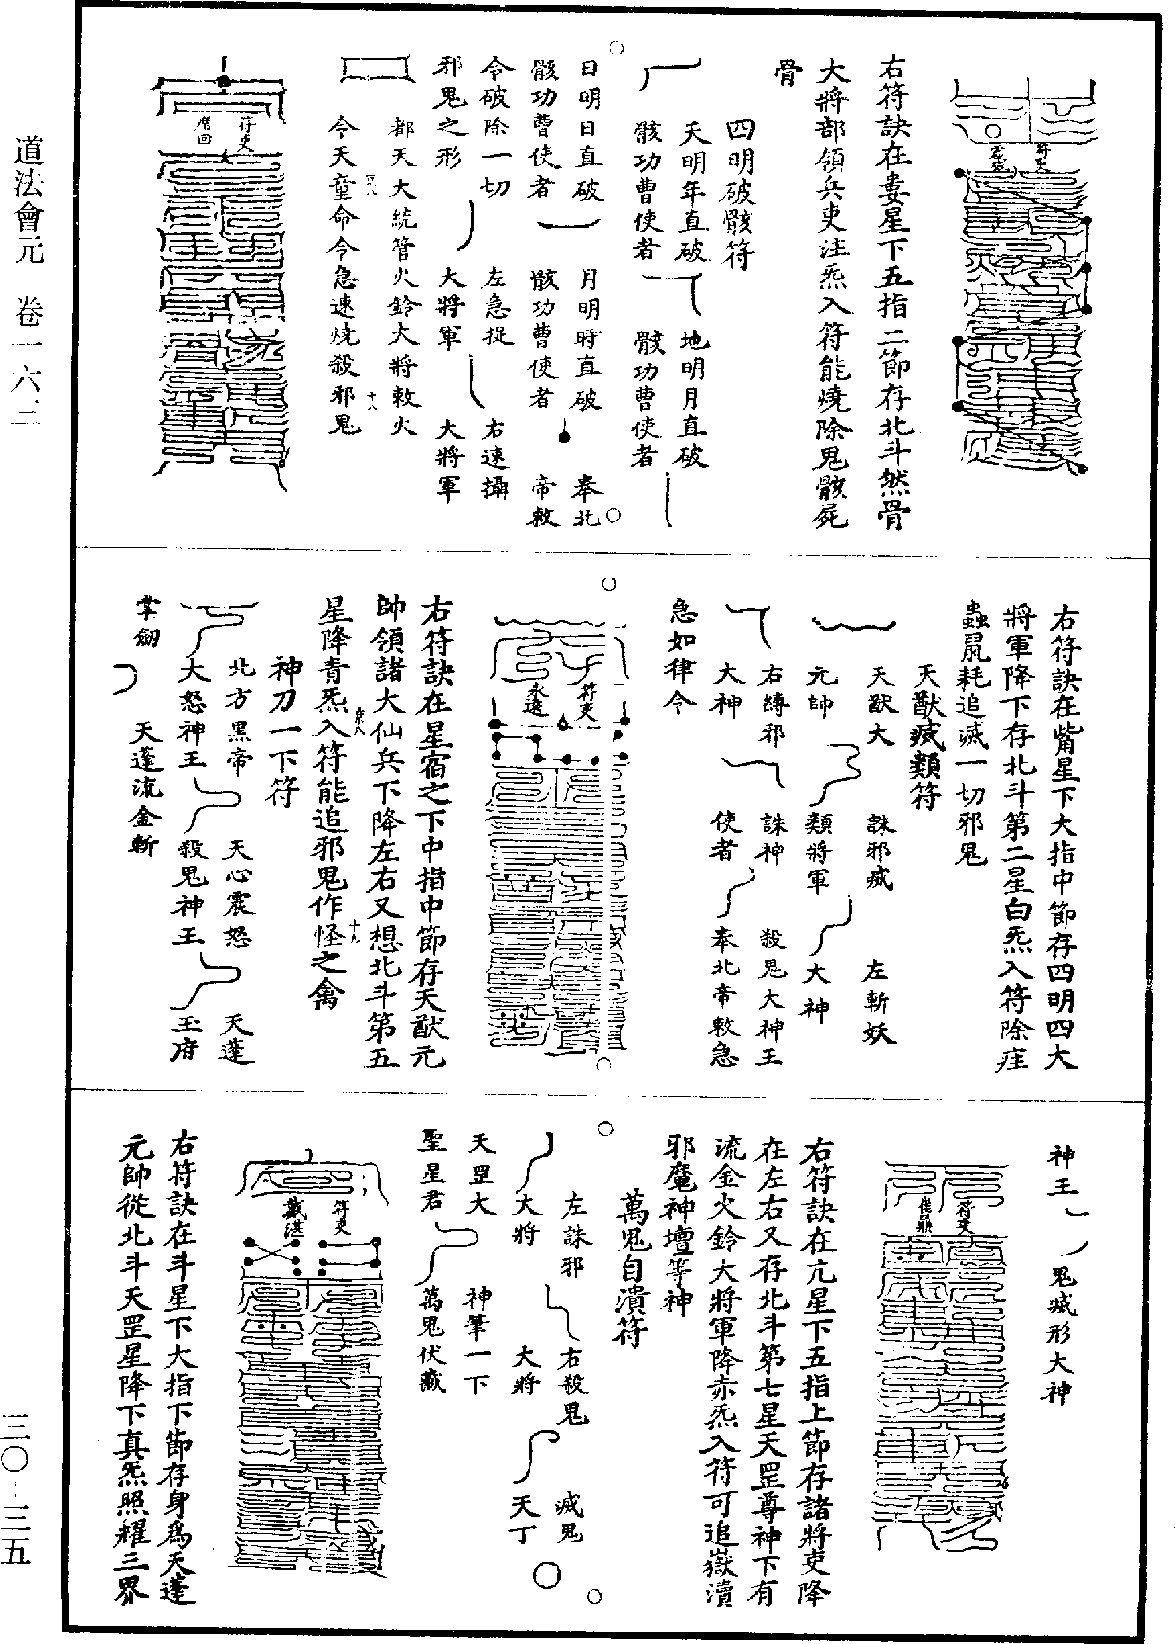 道法會元　卷一六二
三〇－三五
符吏
右符訣在婁星下五指二節存北斗然骨
大將部領兵吏注炁入符能燒除鬼骸屍
骨
四明破骸符
天明年直破
骸功曹使者
地明月直破
骸功曹使者
日明日直破
骸功曹使者
月明時直破
骸功曹使者
奉北
帝敕
令破除一切
邪鬼之形
左急捉
大將軍
右速攝
大將軍
都天大統管火鈴大將敕火
十八
令天童命令急速燒殺邪鬼
符吏
右符訣在觜星下大指中節存四明四大
將軍降下存北斗第二星白炁入符除疰
蟲鼠耗追滅一切邪鬼
天猷滅類符
天猷大
元帥
誅邪滅
類將軍
左斬妖
大神
右縛邪
大神
誅神
使者
殺鬼大神王
奉北帝敕急
急如律令
符吏
永遠
右符訣在星宿之下中指中節存天猷元
帥領諸大仙兵下降左右又想北斗第五
星降青炁入符能追邪鬼作怪之禽
十九
神刀一下符
北方黑帝
大怒神王
天心震怒
殺鬼神王
天蓬
玉府
掌劒
天蓬流金斬
神王
鬼滅形大神
符吏
右符訣在亢星下五指上節存諸將吏降
在左右又存北斗第七星天罡尊神下有
流金火鈴大將軍降赤炁入符可追嶽瀆
邪魔神壇等神
萬鬼自潰符
左誅邪
大將
右殺鬼
大將
滅鬼
天丁
天罡大
聖星君
神筆一下
萬鬼伏藏
符吏
戴湛
右符訣在斗星下大指下節存身爲天蓬
元帥從北斗天罡星降下真炁照耀三界